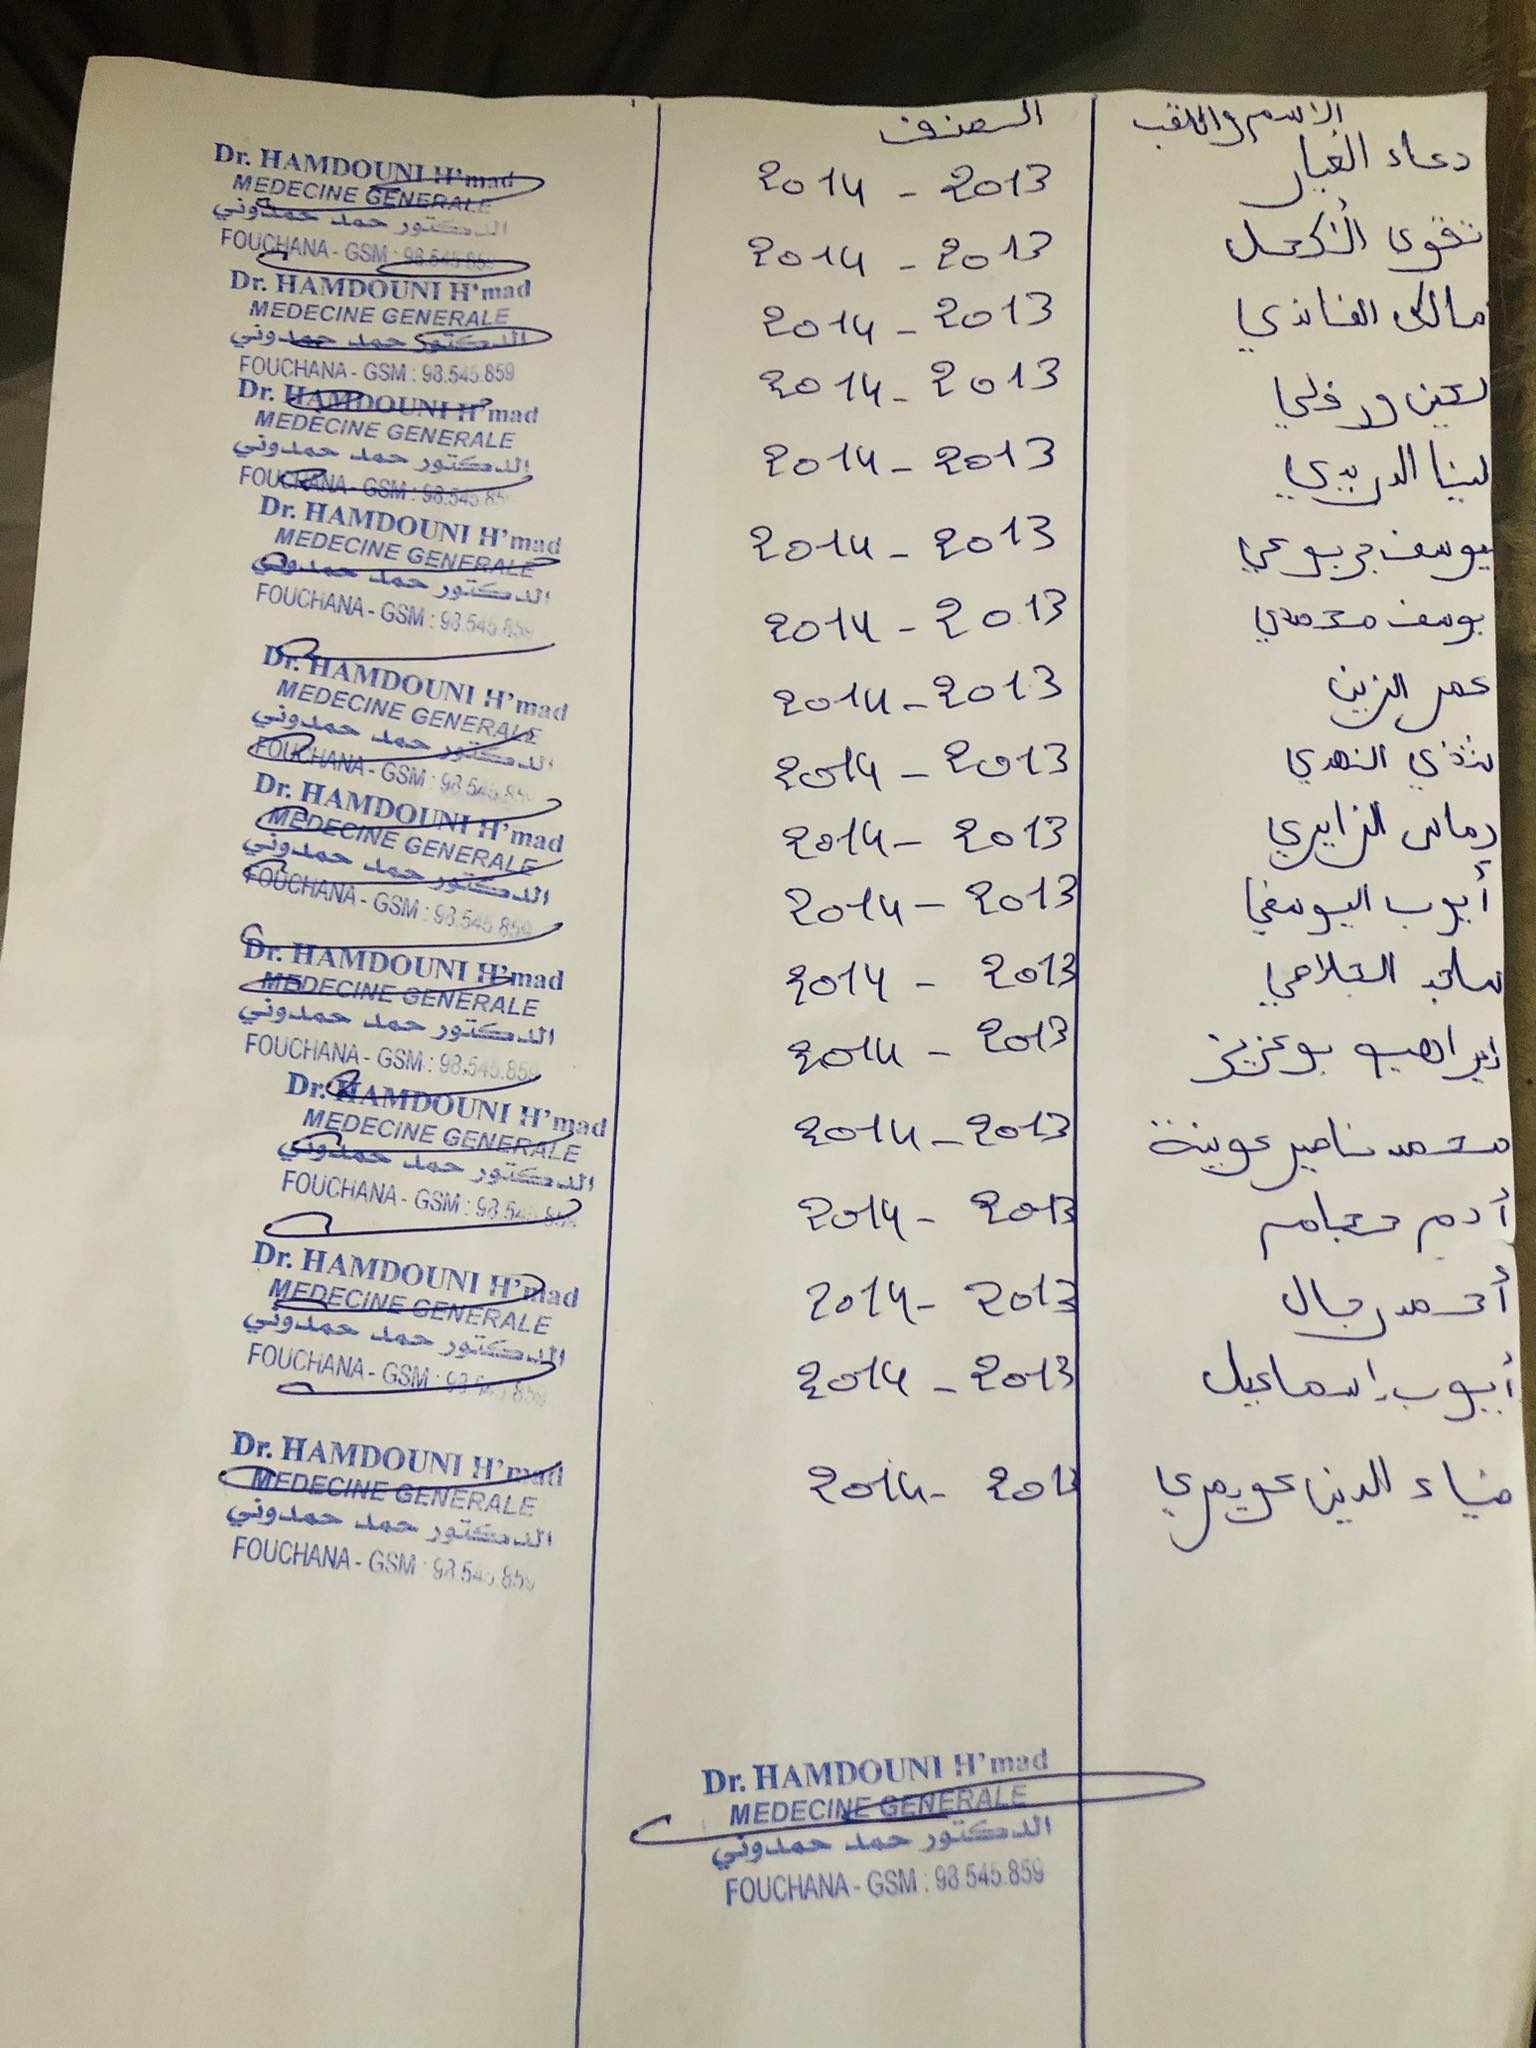 الاسم واللقب
الصنف
دعاء الغبار
2014 - 2013
تقوى الأكحل
2014 - 2013
مالك الغانذي
2014 - 2013
ورفلي
2014 - 2013
لينا الدريدي
2014 - 2013
يوسف جربوعي
2014 - 2013
يوسف محمدي
2014 - 2013
عمر الزين
2014 - 2013
شذى النهدي
2014 - 2013
الزايري
2014 - 2013
أيوب اليوسفي
2014 - 2013
ساجد
2014 - 2013
ابراهيم بوعزيز
2014 - 2013
محمد ناصر عوينة
2014 - 2013
أدم
2014 - 2013
أحمد رجال
2014 - 2013
أيوب إسماعيل
2014 - 2013
ضياء الدين عويمري
2014 - 2013
Dr. HAMDOUNI H'mad
MEDECINE GENERALE
الدكتور حمد حمدوني
FOUCHANA - GSM : 98.545.859
Dr. HAMDOUNI H'mad
MEDECINE GENERALE
الدكتور حمد حمدوني
FOUCHANA - GSM : 98.545.859
Dr. HAMDOUNI H'mad
MEDECINE GENERALE
الدكتور حمد حمدوني
FOUCHANA - GSM : 98.545.859
Dr. HAMDOUNI H'mad
MEDECINE GENERALE
الدكتور حمد حمدوني
FOUCHANA - GSM : 98.545.859
Dr. HAMDOUNI H'mad
MEDECINE GENERALE
الدكتور حمد حمدوني
FOUCHANA - GSM : 98.545.859
Dr. HAMDOUNI H'mad
MEDECINE GENERALE
الدكتور حمد حمدوني
FOUCHANA - GSM : 98.545.859
Dr. HAMDOUNI H'mad
MEDECINE GENERALE
الدكتور حمد حمدوني
FOUCHANA - GSM : 98.545.859
Dr. HAMDOUNI H'mad
MEDECINE GENERALE
الدكتور حمد حمدوني
FOUCHANA - GSM : 98.545.859
Dr. HAMDOUNI H'mad
MEDECINE GENERALE
الدكتور حمد حمدوني
FOUCHANA - GSM : 98.545.859
Dr. HAMDOUNI H'mad
MEDECINE GENERALE
الدكتور حمد حمدوني
FOUCHANA - GSM : 98.545.859
Dr. HAMDOUNI H'mad
MEDECINE GENERALE
الدكتور حمد حمدوني
FOUCHANA - GSM : 98.545.859